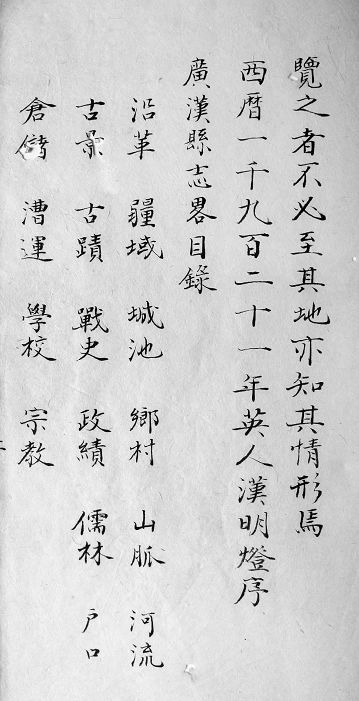 覽之者不必至其地亦知其情形焉
西曆一千九百二十一年英人漢明燈序
廣漢縣志畧目錄
沿革 疆域 城池 鄉村 山脈 河流
古景 古蹟 戰史 政績 儒林 戶口
倉儲 漕運 學校 宗教